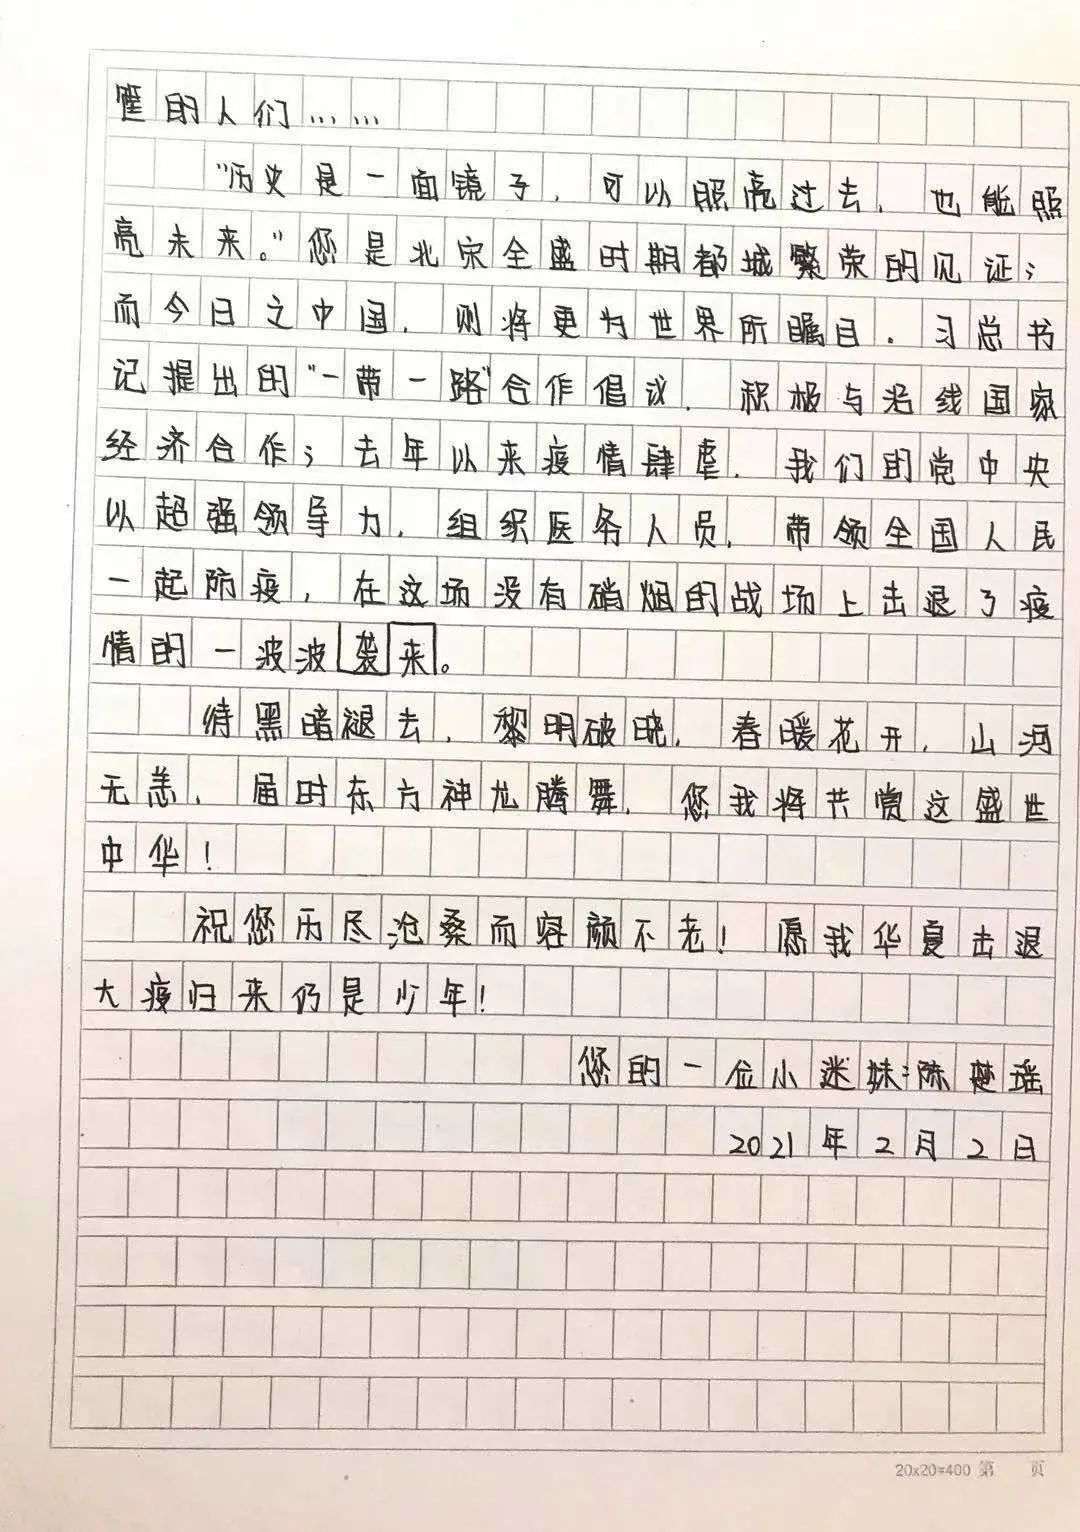 的人们……
“历史是一面镜子，可以照亮过去，也能照
亮未来。”您是北宋全盛时期都城繁荣的见证；
而今日之中国，则将更为世界所瞩目。习总书
记提出的“一带一路”合作倡议，积极与沿线国家
经济合作；去年以来疫情肆虐，我们的党中央
以超强领导力，组织医务人员，带领全国人民
一起防疫，在这场没有硝烟的战场上击退了疫
情的一波波袭来。
待黑暗褪去，黎明破晓，春暖花开，山河
无恙，届时东方神龙腾舞，您我将共赏这盛世
中华！
祝您历尽沧桑而容颜不老！愿我华夏击退
大疫归来仍是少年！
您的一位小迷妹：陈楚瑶
2021年2月2日
20x20=400 第 页